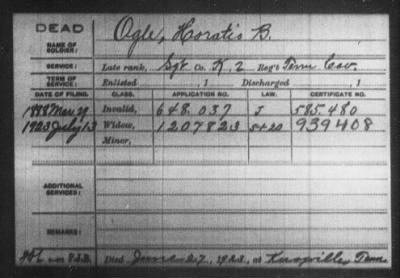 DEAD
NAME OF SOLDIER: Ogle, Horatio B.
SERVICE: Late rank, Sgt Co. K, 2 Reg't Tenn Cav.
TERM OF SERVICE: Enlisted , 1 Discharged , 1
DATE OF FILING. CLASS. APPLICATION NO. LAW. CERTIFICATE NO.
1888 Mar 29 Invalid, 648.037 J 585.480
1923 July 13 Widow, 1207823 939408
Minor,
ADDITIONAL SERVICES:
REMARKS:
Died June 27, 1923, at Knoxville, Tenn